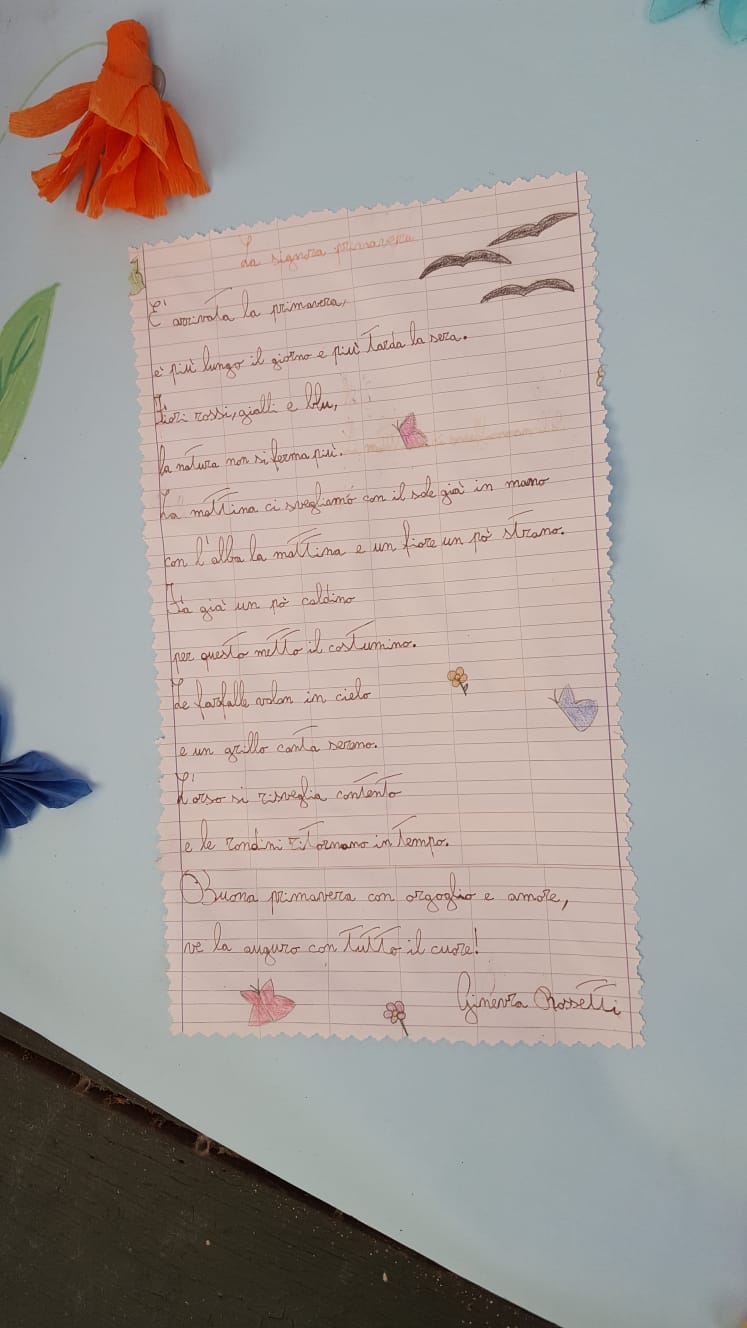 La signora primavera
E' arrivata la primavera,
è più lungo il giorno e più tarda la sera.
Fiori rossi, gialli e blu,
la natura non si ferma più.
La mattina ci svegliamo con il sole già in mano
con l'alba la mattina e un fiore un pò strano.
Fa già un pò caldino
per questo metto il costumino.
Le farfalle volan in cielo
e un grillo canta sereno.
L'orso si risveglia contento
e le rondini ritornano in tempo.
Buona primavera con orgoglio e amore,
ve la auguro con tutto il cuore!
Ginevra Rossetti